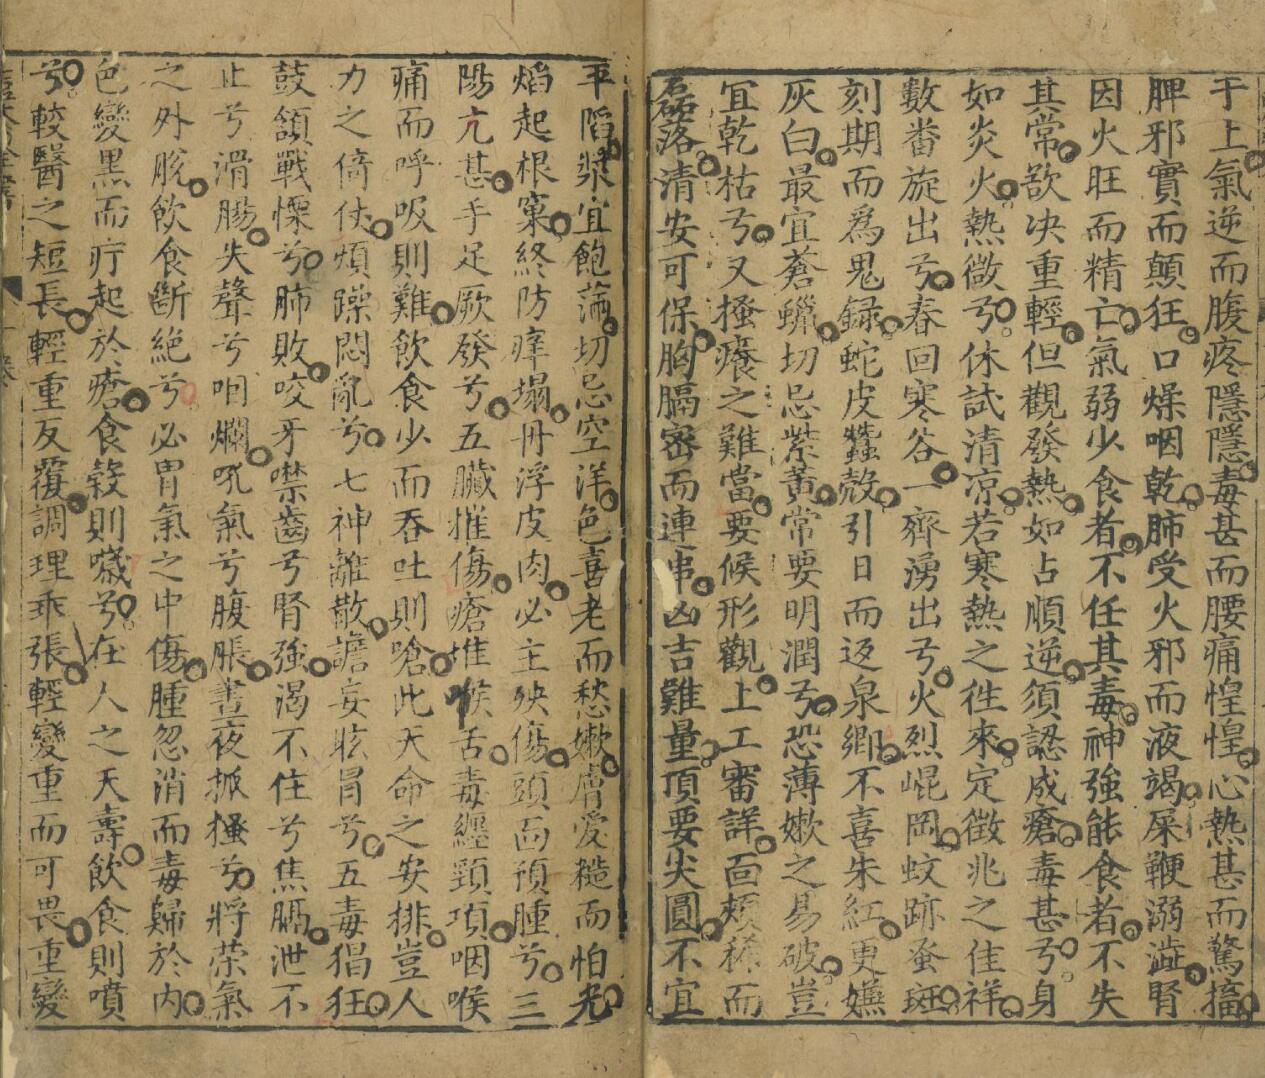 于上氣逆而腹疼隱隱毒甚而腰痛惶惶心熱甚而驚搐
脾邪實而顛狂口燥咽乾肺受火邪而液竭屎鞕溺澁腎
因火旺而精亡氣弱少食者不任其毒神強能食者不失
其常欲决重輕但觀發熱如占順逆須認成瘡毒甚兮身
如炎火熱微兮休試清凉若寒熱之徃來定徵兆之佳祥
數畨旋出兮春回寒谷一齊湧出兮火烈崐岡蚊跡蚤斑
刻期而爲鬼録蛇皮蠶殼引日而返泉鄉不喜朱紅更嫌
灰白最宜蒼蠟切忌紫黄常要明潤兮恐薄嫰之易破豈
冝乾枯兮又搔癢之難當要候形觀上工審詳面頰稀而
磊落清安可保胸膈密而連串凶吉難量頂要尖圓不宜
平陷漿宜飽滿切忌空洋色喜老而愁嫰膚愛糙而怕光
焰起根窠終防痒塌冊浮皮肉必主殃傷頭靣預腫兮三
陽亢甚手足厥發兮五臟摧傷瘡堆喉舌毒纏頸項咽喉
痛而呼吸則難飲食少而吞吐則嗆此天命之安排豈人
力之倚仗煩躁悶亂兮七神離散譫妄眩冒兮五毒猖狂
鼓頷戰慄兮肺敗咬牙噤齒兮腎強渴不住兮焦膈泄不
止兮滑腸失聲兮咽爛吼氣兮腹脹晝夜抓搔兮將榮氣
之外脫飲食斷絶兮必胃氣之中傷腫忽消而毒歸於内
色變黑而疔起於瘡食穀則噦兮在人之夭壽飲食則噴
兮較醫之短長輕重反覆調理乖張輕變重而可畏重變